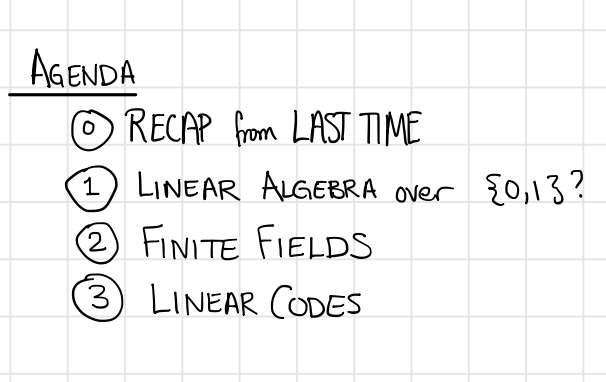 AGENDA
0 RECAP from LAST TIME
1 LINEAR ALGEBRA over {0,1}?
2 FINITE FIELDS
3 LINEAR CODES